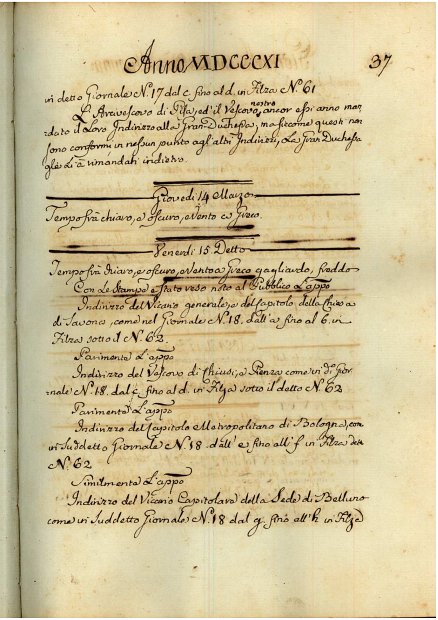 Anno MDCCCXI
37
in detto Giornale N. 17 dal c fino al d. in Filza N. 61
L'Arcivescovo di Pisa, ed'il Vescovo nostro ancor essi anno man
dato il Loro Indirizzo alla Gran-Duchessa, ma siccome questi non
sono conformi in nessun punto agl'altri Indirizzi, La Gran Duchessa
gle Li à rimandati indietro.
Giovedi 14 Marzo
Tempo frà chiaro, e oscuro, e Vento a Greco.
Venerdi 15 Detto
Tempo frà chiaro, e oscuro, e Vento a Greco gagliardo, freddo
Con Le Stampe è stato reso noto al Pubblico L'appo
Indirizzo del Vicario generale, e del Capitolo della Chiesa
di Savona, come nel Giornale N. 18. dall'a fino al b. in
Filza sotto il N. 62.
Parimente L'appo
Indirizzo del Vescovo di Chiusi, e Pienza come in do Gior-
nale N. 18. dal c fino al d. in Filza sotto il detto N. 62
Parimente L'appo
Indirizzo del Capitolo Metropolitano di Bologna, come
in Suddetto Giornale N. 18 dall'e fino all'f in Filza detta
N. 62
Similmente L'appo
Indirizzo del Vicario Capitolare della Sede di Belluno
come in Suddetto Giornale N. 18 dal g. fino all'h in Filza